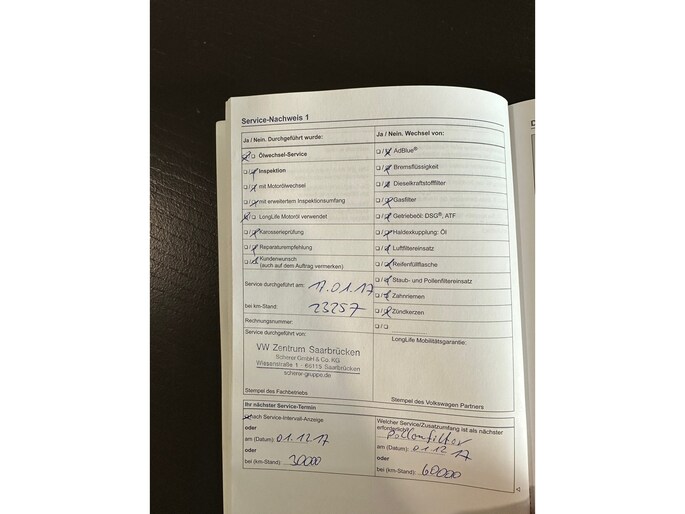 Service-Nachweis 1
Ja / Nein. Durchgeführt wurde:
Ölwechsel-Service
Inspektion
mit Motorölwechsel
mit erweitertem Inspektionsumfang
LongLife Motoröl verwendet
Karosserieprüfung
Reparaturempfehlung
Kundenwunsch
(auch auf dem Auftrag vermerken)
Service durchgeführt am: 17.01.17
bei km-Stand: 23257
Rechnungsnummer:
Service durchgeführt von:
VW Zentrum Saarbrücken
Scherer GmbH & Co. KG
Wiesenstraße 1 - 66115 Saarbrücken
scherer-gruppe.de
Stempel des Fachbetriebs
Ja / Nein. Wechsel von:
AdBlue®
Bremsflüssigkeit
Dieselkraftstofffilter
Gasfilter
Getriebeöl: DSG®, ATF
Haldexkupplung: Öl
Luftfiltereinsatz
Reifenfüllflasche
Staub- und Pollenfiltereinsatz
Zahnriemen
Zündkerzen
LongLife Mobilitätsgarantie:
Stempel des Volkswagen Partners
Ihr nächster Service-Termin
nach Service-Intervall-Anzeige
oder
am (Datum): 01.12.17
oder
bei (km-Stand): 30000
Welcher Service/Zusatzumfang ist als nächster
erforderlich? Pollenfilter
am (Datum): 01.12.17
oder
bei (km-Stand): 60000